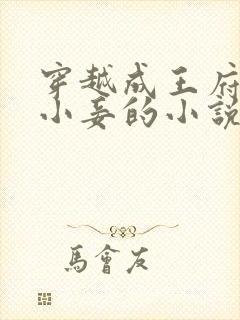 穿越成王府
小妾的小說
馬會友